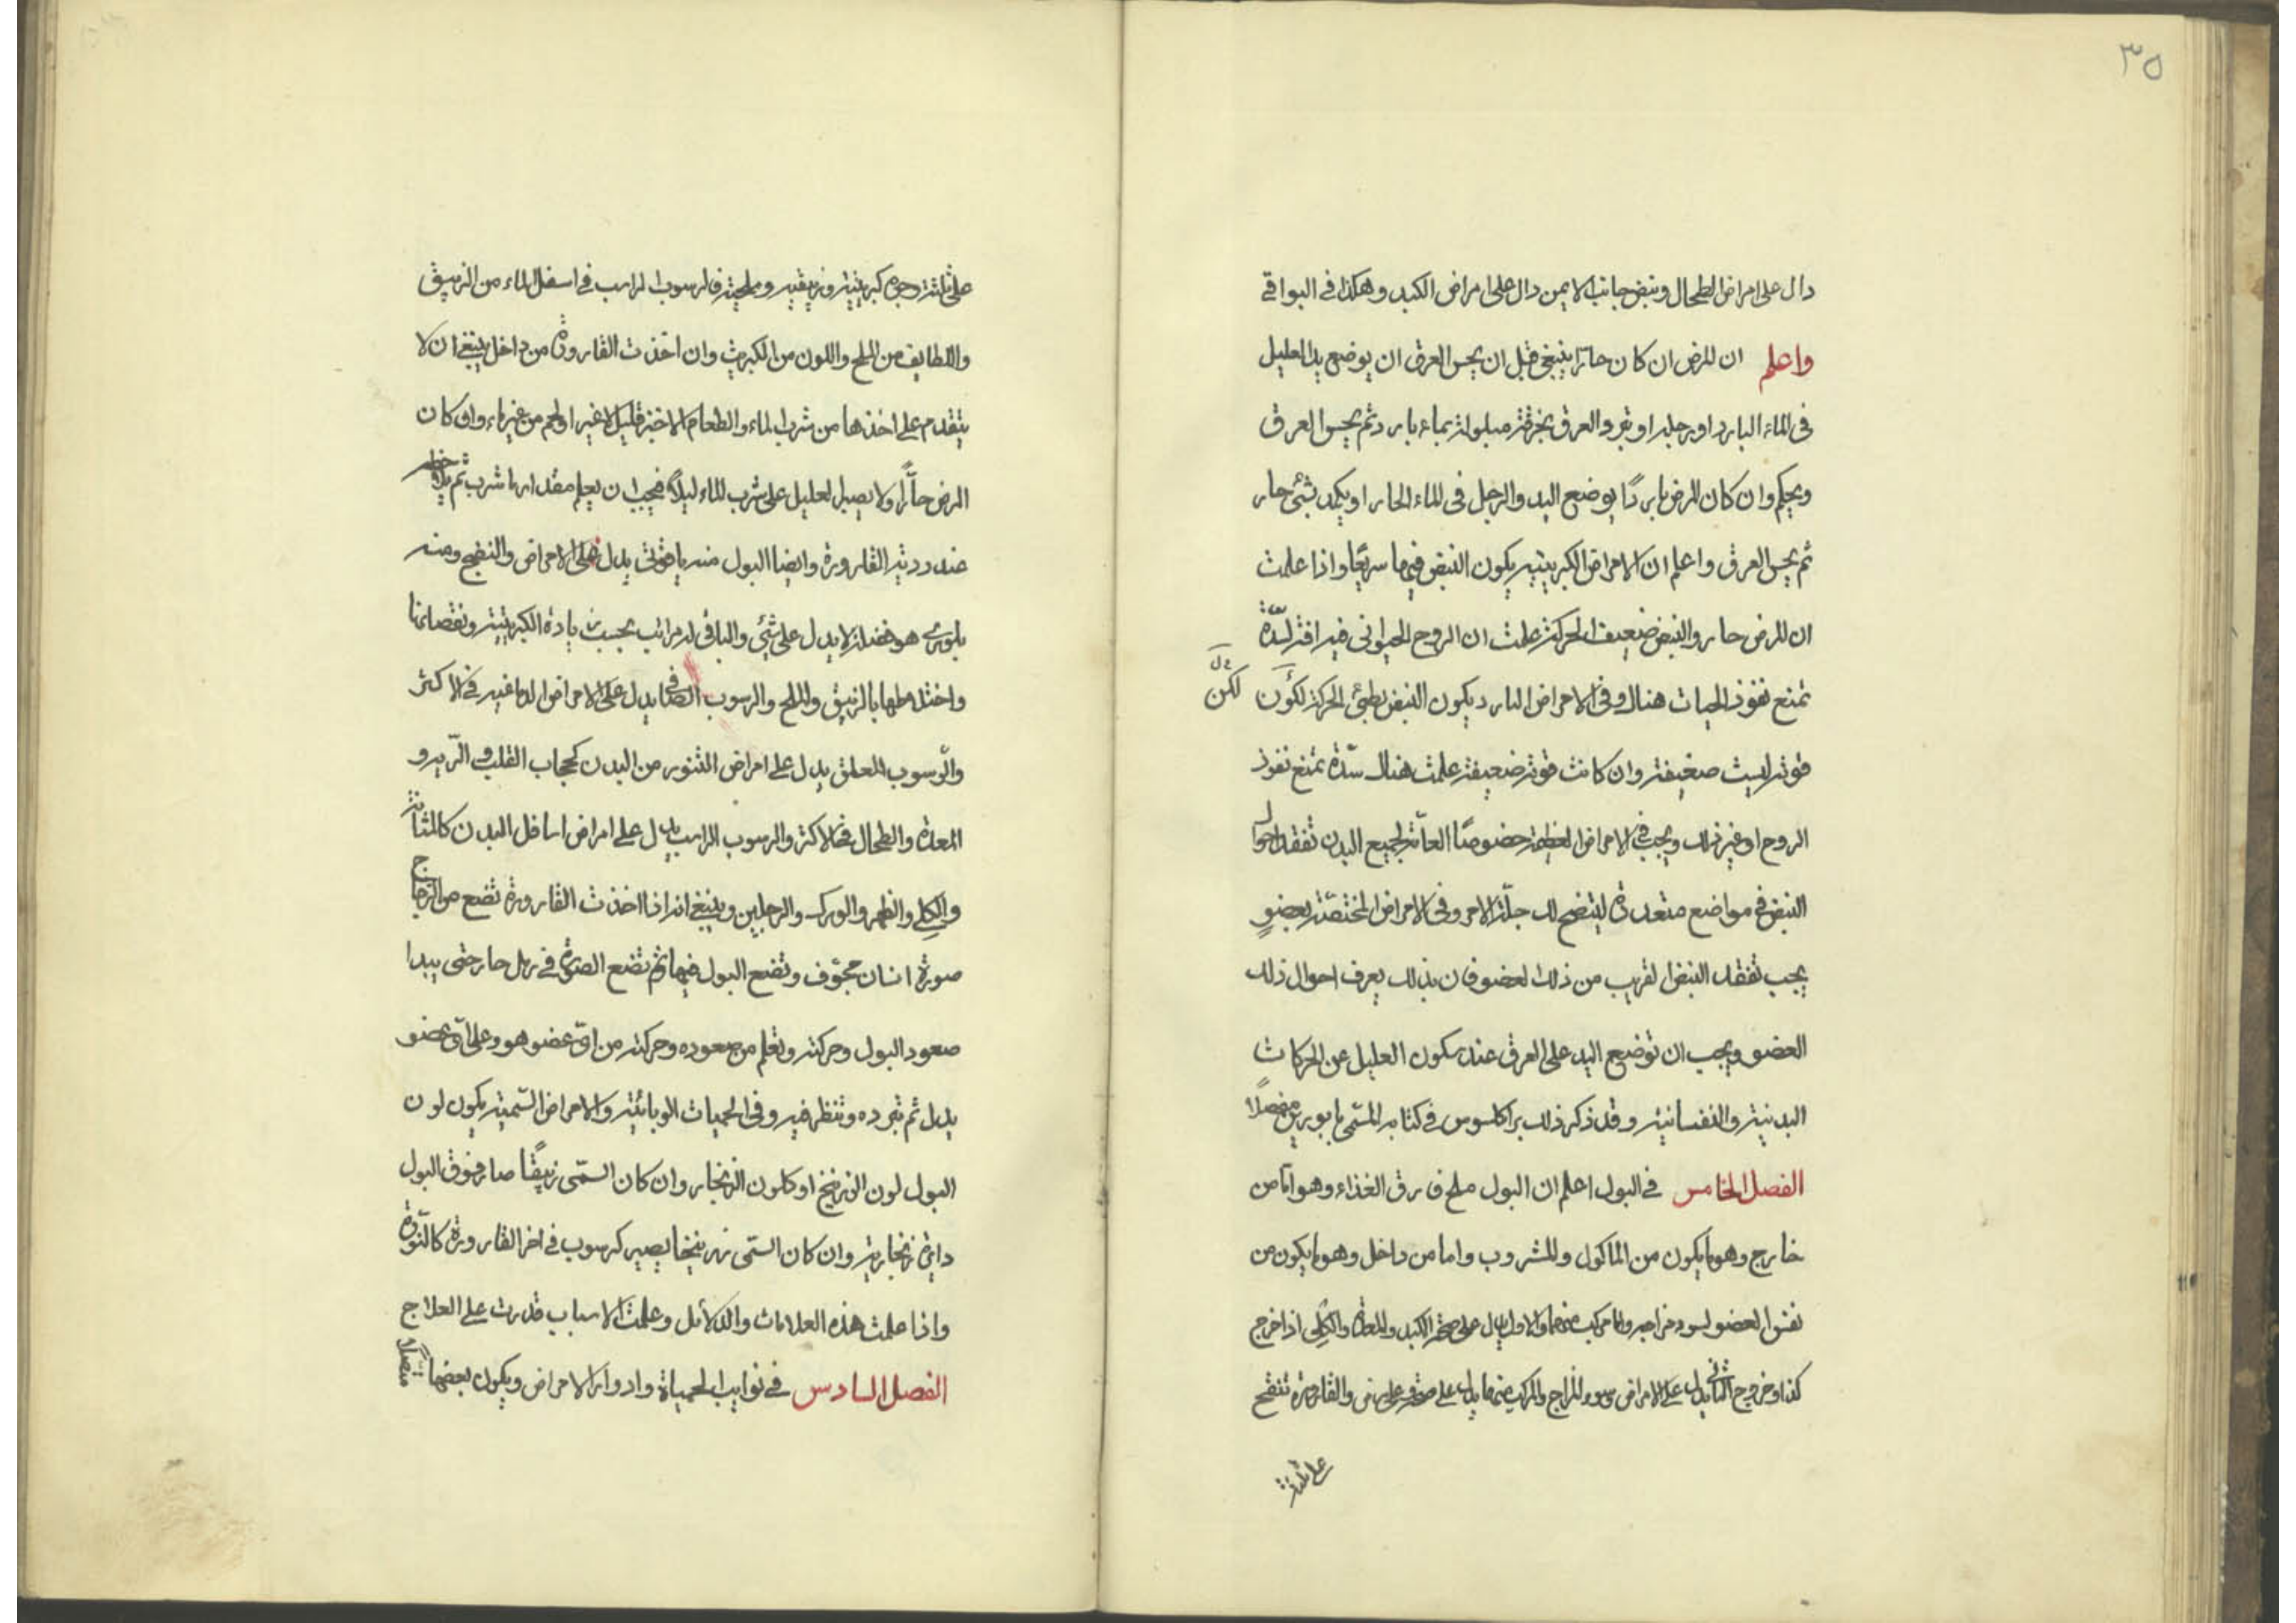 ٣٥
دال على امراض الطحال ونبض جانب الايمن دال على امراض الكبد وهكذا فى البواقى
واعلم ان المرض ان كان حارا ينبغى قبل ان يحس العرق ان يوضع يد العليل
فى الماء البارد او رجليه او تبرد العرق بخرقة مبلولة بماء بارد ثم يحس العرق
ويحكم وان كان المرض باردًا يوضع اليد والرجل فى الماء الحار او يكمد بشئ حار
ثم يحس العرق واعلم ان الامراض الكبريتية يكون النبض فيها سريعًا واذا علمت
ان المرض حار والنبض ضعيف الحركة علمت ان الروح الحيوانى فيه افة لسدّة
تمنع نفوذ الحيات هناك وفى الامراض البارد يكون النبض بطئ الحركة لكن
لكنّ
قوته ليست ضعيفة وان كانت قوته ضعيفة علمت هناك سدّة تمنع نفوذ
الروح او غير ذلك ويجب فى الامراض العظيمة خصوصًا العامّة لجميع البدن تفقد احوال
النبض فى مواضع متعددة ليتضح لك جلّة الامر وفى الامراض المختصّة بعضوٍ
يجب تفقد النبض القريب من ذلك العضو فان بذلك يعرف احوال ذلك
العضو ويجب ان توضع اليد على العرق عند سكون العليل عن الحركات
البدنية والنفسانية وقد ذكر ذلك براكلسوس فى كتابه المسّمى مفصلًا
الفصل الخامس فى البول اعلم ان البول ملح فارق الغذاء وهو امّا من
خارج وهو ما يكون من الماكول والمشروب واما من داخل وهو ما يكون من
نفس العضو لسوء مزاجه واما مركب منهما والاول يدل على صحة الكبد والمعدة والكلى اذا خرج
كذا وخروج الثانى يدل على الامراض وسوء المزاج والمركب منهما يدل على صحة وعلى مرض والقارورة تنقح
على ثلثة
على ثلثة وجوه كبريتية وزيبقية وملحية فالرسوب الراسب فى اسفل الماء من الزيبق
واللطايف من الملح واللون من الكبريت وان اخذت القارورة من داخل ينبغى ان لا
يتقدم على اخذها من شرب الماء والطعام الا خبز قليل لا غير او لحم من غير ماء وان كان
المرض حارًّا ولا يصبر العليل على شرب الماء ليلًا فيجب ان يعلم مقدار ما شرب ثم
عند رؤية القارورة وايضا البول منه ياقوتى يدل على الامراض والنضج ومنه
بلورى هو فضلة لا يدل على شئ والباقى له مراتب بحسب زيادة الكبريتية ونقصانها
واختلاطها بالزيبق والملح والرسوب الصافى يدل على الامراض الدماغية فى الاكثر
والرّسوب المعلق يدل على امراض التنور من البدن كحجاب القلب والرّية و
المعدة والطحال فى الاكثر والرسوب الراسب يدل على امراض اسافل البدن كالمثانة
والكلى والظهر والورك والرجلين وينبغى انه اذا اخذت القارورة تضع من الزجاج
صورة انسان مجوّف وتضع البول فيها ثم تضع الصورة فى رمل حار حتى يبدا
صعود البول وحركته وتعلم من صعوده وحركته من اىّ عضو هو وعلى اىّ عضو
يدل ثم تبرده وتنظر فيه وفى الحميات الوبائية والامراض السّمية يكون لون
البول لون الزرنيخ او كلون الزنجار وان كان السمّى زيبقًا صار فوق البول
دايرة زنجارية وان كان السمّى زرنيخا يصير كرسوب فى اخر القارورة كالنّورة
واذا علمت هذه العلامات والدلائل وعلمت الاسباب قدرت على العلاج
الفصل السادس فى نوايب الحمياة وادوار الامراض ويكون بعضها متصلا